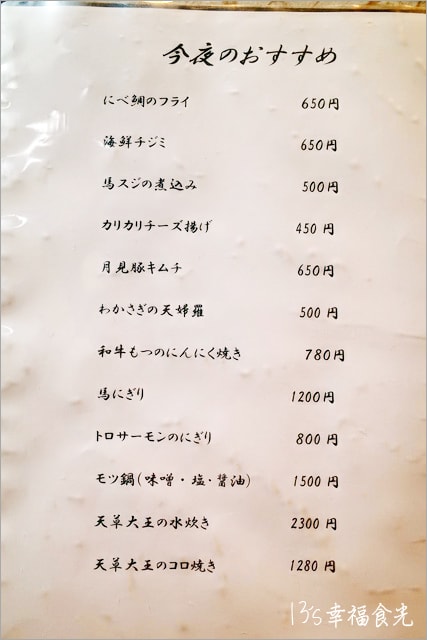 今夜のおすすめ
にべ鯛のフライ 650円
海鮮チヂミ 650円
馬スジの煮込み 500円
カリカリチーズ揚げ 450円
月見豚キムチ 650円
わかさぎの天婦羅 500円
和牛もつのにんにく焼き 780円
馬にぎり 1200円
トロサーモンのにぎり 800円
モツ鍋(味噌・塩・醤油) 1500円
天草大王の水炊き 2300円
天草大王のコロ焼き 1280円
13's幸福食光